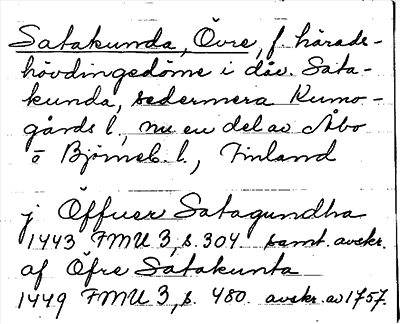 Satakunda, Övre, f. härads-
hövdingedöme i dåv. Sata-
kunda, sedermera Kumo-
gårds l., nu en del av Åbo
o Björneb. l., Finland
j Öffuer Satagundha
1443 FMU 3, s. 304. samt. avskr.
af Öfre Satakunta
1449 FMU 3, s. 480. avskr. av 1757.